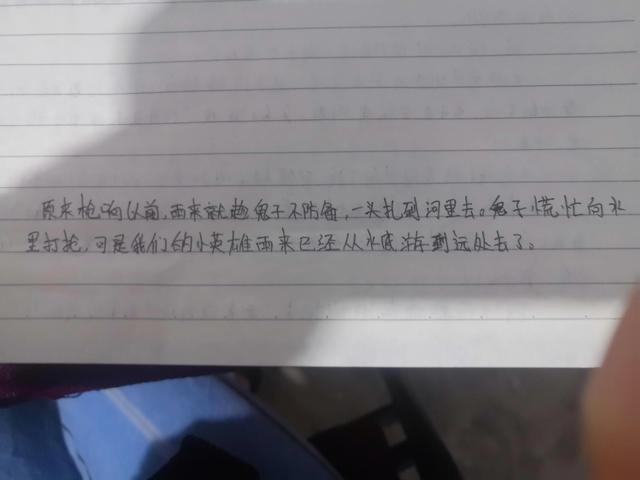 原来枪响以前,雨来就趁鬼子不防备,一头扎到河里去。鬼子慌忙向水
里打枪,可是我们的小英雄雨来已经从水底游到远处去了。